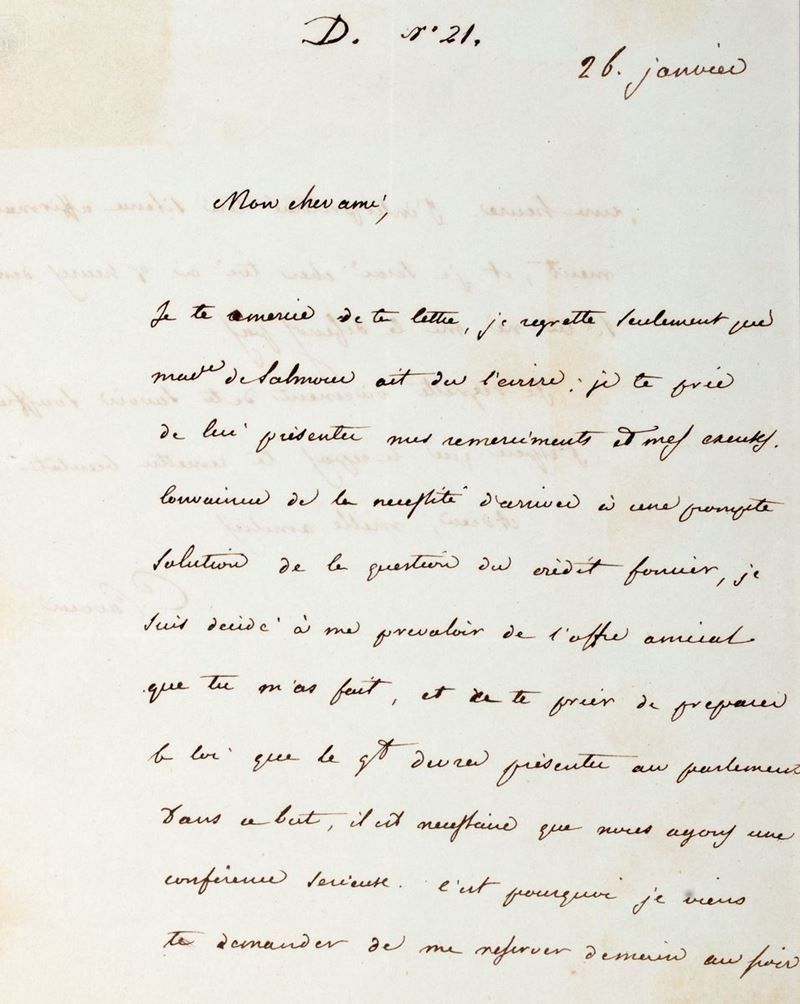 D. N° 21.
26. janvier
Mon cher ami,
Je te remercie de ta lettre, je regrette seulement que
mad.me de Salmour ait du l'ecrire; je te prie
de lui présenter mes remerciments et mes excuses.
Convaincu de la necessité d'arriver à une prompte
solution de la question du crédit foncier, je
suis decidé à me prevaloir de l'offre amical
que tu m'as fait, et de te prier de preparer
la loi que le g.t devra présenter au parlement
Dans ce but, il est necessaire que nous ayons une
conférence serieuse. C'est pourquoi je viens
te demander de me reserver demain au soir